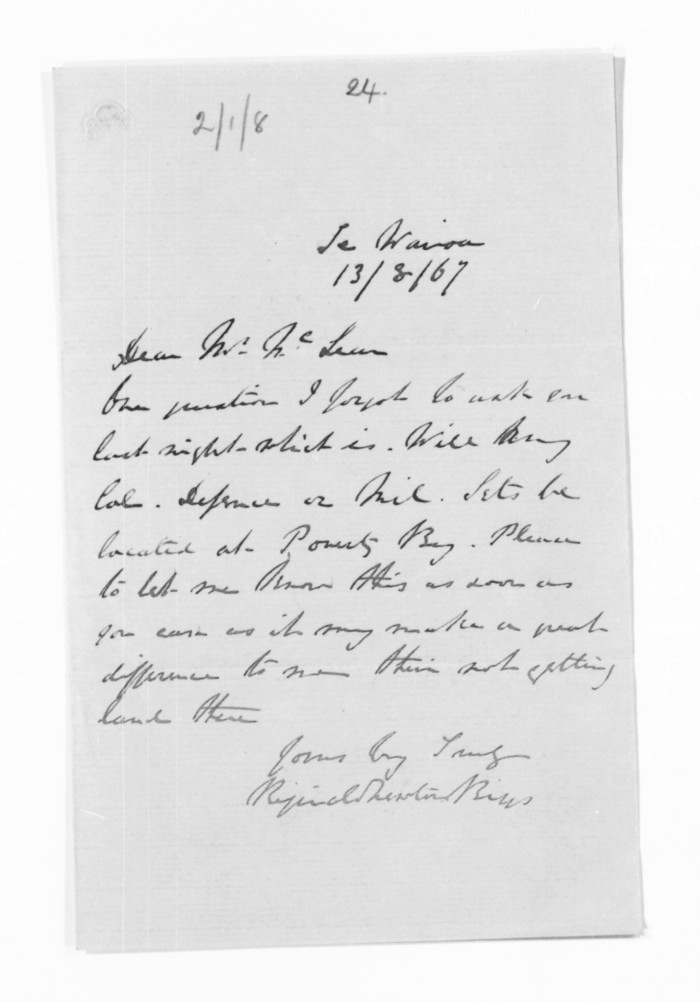 24.
2/1/8
Te Wairoa
13/8/67
Dear Mr. McLean
One question I forgot to ask you
last night which is. Will any
Col. Defence or Mil. Sets be
located at Poverty Bay. Please
to let me know this as soon as
you can as it may make a great
difference to me their not getting
land there
Yours Very Truly
Reginald Newton Biggs